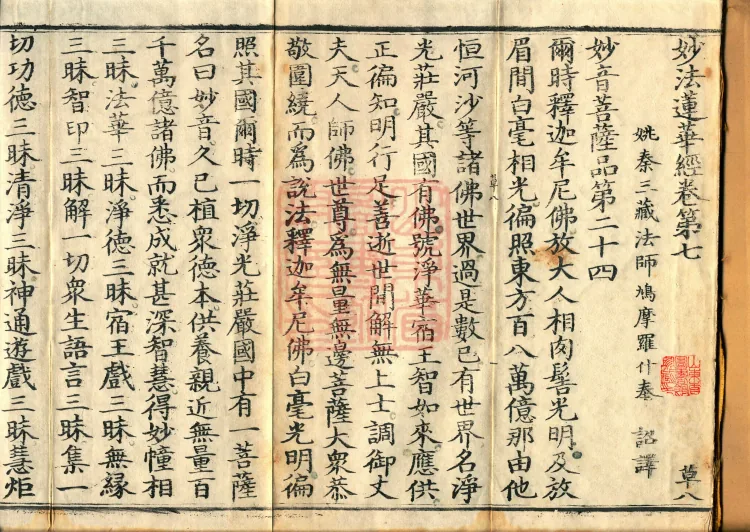 妙法蓮華經卷第七
姚秦三藏法師鳩摩羅什奉 詔譯
妙音菩薩品第二十四
爾時釋迦牟尼佛放大人相肉髻光明及放
眉間白毫相光徧照東方百八萬億那由他
恒河沙等諸佛世界過是數已有世界名淨
光莊嚴其國有佛號淨華宿王智如來應供
正徧知明行足善逝世間解無上士調御丈
夫天人師佛世尊為無量無邊菩薩大衆恭
敬圍繞而為說法釋迦牟尼佛白毫光明徧
照其國爾時一切淨光莊嚴國中有一菩薩
名曰妙音久已植衆德本供養親近無量百
千萬億諸佛而悉成就甚深智慧得妙幢相
三昧法華三昧淨德三昧宿王戲三昧無緣
三昧智印三昧解一切衆生語言三昧集一
切功德三昧清淨三昧神通遊戲三昧慧炬
草八
草八